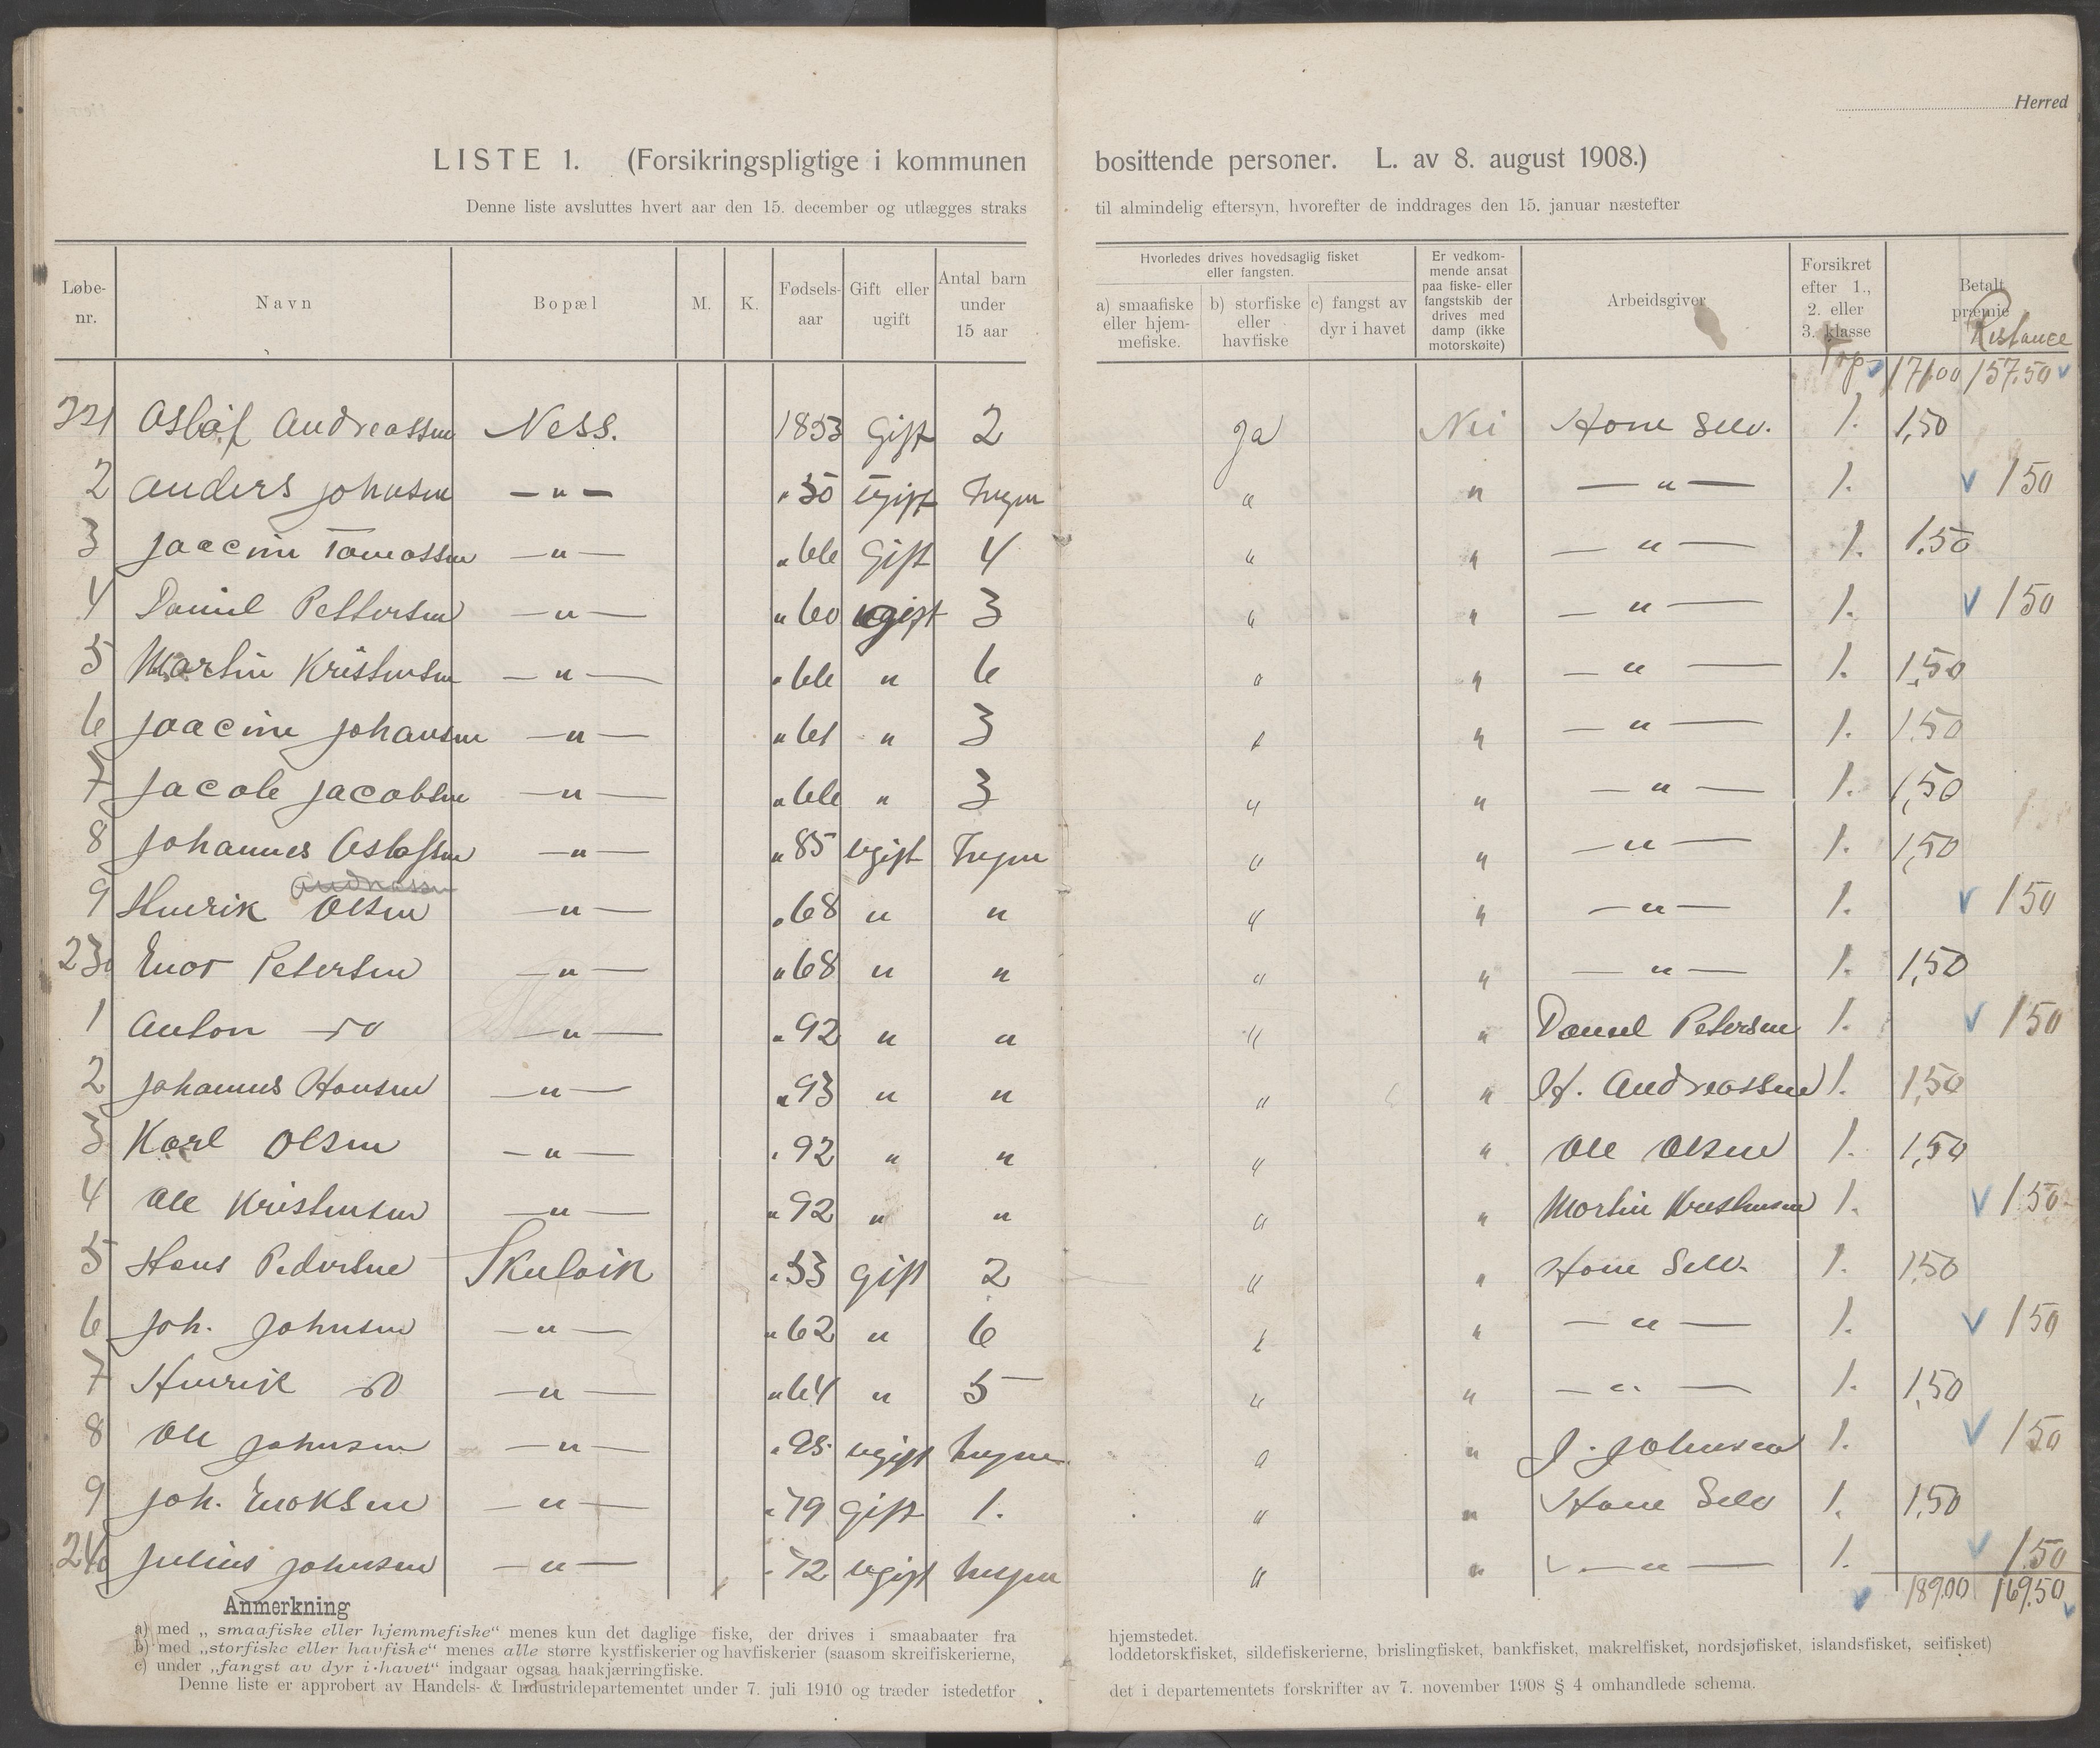 Herred
LISTE 1. (Forsikringspligtige i kommunen bosittende personer. L. av 8. august 1908.)
Denne liste avsluttes hvert aar den 15. december og utlægges straks til almindelig eftersyn, hvorefter de inddrages den 15. januar næstefter
Løbe-nr. Navn Bopæl M. K. Fødsels-aar Gift eller ugift Antal barn under 15 aar Hvorledes drives hovedsaglig fisket eller fangsten. a) smaafiske eller hjem-mefiske. b) storfiske eller havfiske c) fangst av dyr i havet Er vedkom-mende ansat paa fiske- eller fangstskib der drives med damp (ikke motorskøite) Arbeidsgiver Forsikret efter 1., 2. eller 3. klasse Betalt præmie Restance
171.00 157.50
221 Aslaf Andreassen Ness. 1853 Gift 2 Ja Nei Han Selv. 1. 1,50
2 Anders Johnsen — " — " 50 Ugift Ingen " " — " — 1. 1 50
3 Joacim Tomassen — " — " 66 Gift 4 " " — " — 1. 1.50
4 Daniel Pettersen — " — " 60 ugift 3 " " — " — 1. 1 50
5 Martin Kristensen — " — " 66 " 6 " " — " — 1. 1,50
6 Joacim Johansen — " — " 61 " 3 " " — " — 1. 1.50
7 Jacob Jacobsen — " — " 66 " 3 " " — " — 1. 1,50
8 Johannes Aslafsen — " — " 85 ugift Ingen " " — " — 1. 1,50
Andreassen
9 Henrik Olsen — " — " 68 " " " " — " — 1. 1 50
230 Enok Petersen — " — " 68 " " " " — " — 1. 1,50
1 Anton do — " — " 92 " " " " Daniel Petersen 1. 1 50
2 Johannes Hansen — " — " 93 " " " " H. Andreassen 1. 1,50
3 Karl Olsen — " — " 92 " " " " Ole Olsen 1. 1,50
4 Ole Kristensen — " — " 92 " " " " Martin Kristensen 1. 1.50
5 Hans Pedersen Skulvik " 53 Gift 2 " " Han Selv. 1. 1.50
6 Joh. Johnsen — " — " 62 " 6 " " — " — 1. 1 50
7 Henrik do — " — " 64 " 5 " " — " — 1. 1,50
8 Ole Johnsen — " — " 95 ugift Ingen " " J. Johnsen 1. 1 50
9 Joh. Enoksen — " — " 79 gift 1. " " Han Selv 1. 1,50
240 Julius Johnsen — " — " 72 ugift Ingen " " — " — 1. 1.50
189.00 169.50
Anmerkning
a) med „smaafiske eller hjemmefiske“ menes kun det daglige fiske, der drives i smaabaater fra hjemstedet.
b) med „storfiske eller havfiske“ menes alle større kystfiskerier og havfiskerier (saasom skreifiskerierne, loddetorskfisket, sildefiskerierne, brislingfisket, bankfisket, makrelfisket, nordsjøfisket, islandsfisket, seifisket)
c) under „fangst av dyr i havet“ indgaar ogsaa haakjærringfiske.
Denne liste er approbert av Handels- & Industridepartementet under 7. juli 1910 og træder istedetfor det i departementets forskrifter av 7. november 1908 § 4 omhandlede schema.